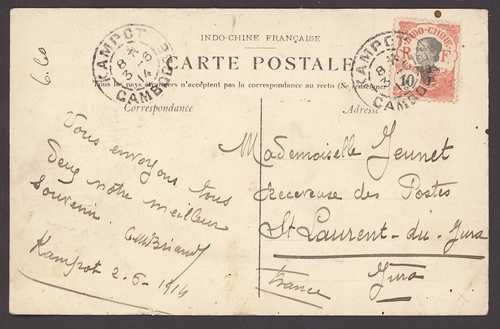 INDO-CHINE FRANÇAISE
CARTE POSTALE
Tous les pays étrangers n'acceptent pas la correspondance au recto (Se renseigner
Correspondance
Adresse
6.60
KAMPOT
8 * 6
3 14
CAMBODGE
KAMPOT
CAMBODGE
INDO-CHINE
R F
10
Vous envoyons tous
deux notre meilleur
souvenir.
Kampot 2-6-1914
Mademoiselle Jeunet
Receveuse des Postes
St Laurent-du-Jura
Jura
France